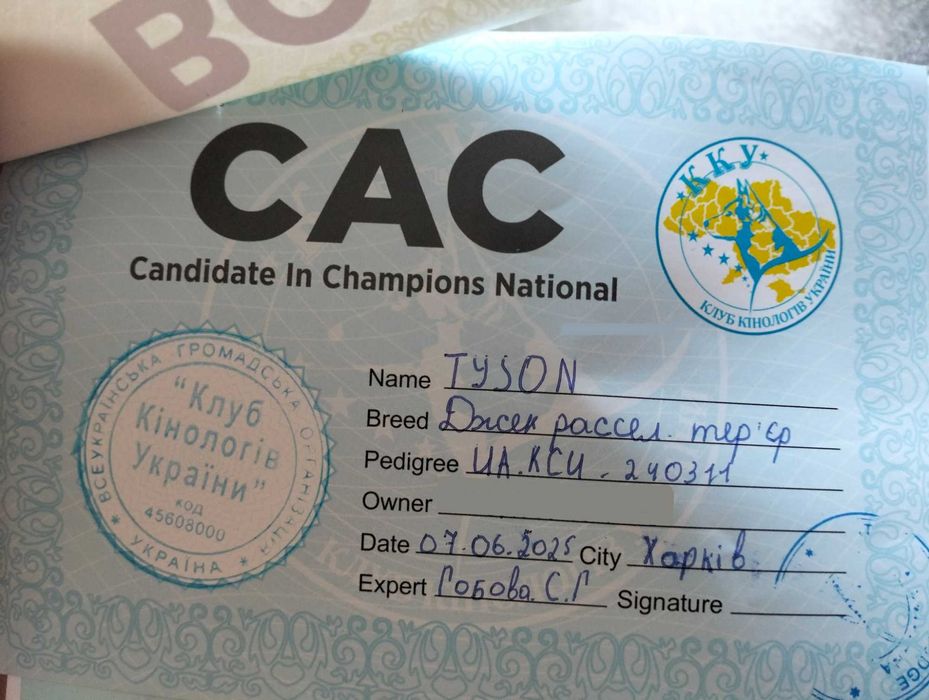 ВС
CAC
Candidate In Champions National
ККУ
КЛУБ КІНОЛОГІВ УКРАЇНИ
ВСЕУКРАЇНСЬКА ГРОМАДСЬКА ОРГАНІЗАЦІЯ
"Клуб
Кінологів
України"
код
45608000
УКРАЇНА
Name TYSON
Breed Джек рассел. тер'єр
Pedigree UA.KCU. 240311
Owner
Date 07.06.2025 City Харків
Expert Гобова. С.Г
Signature